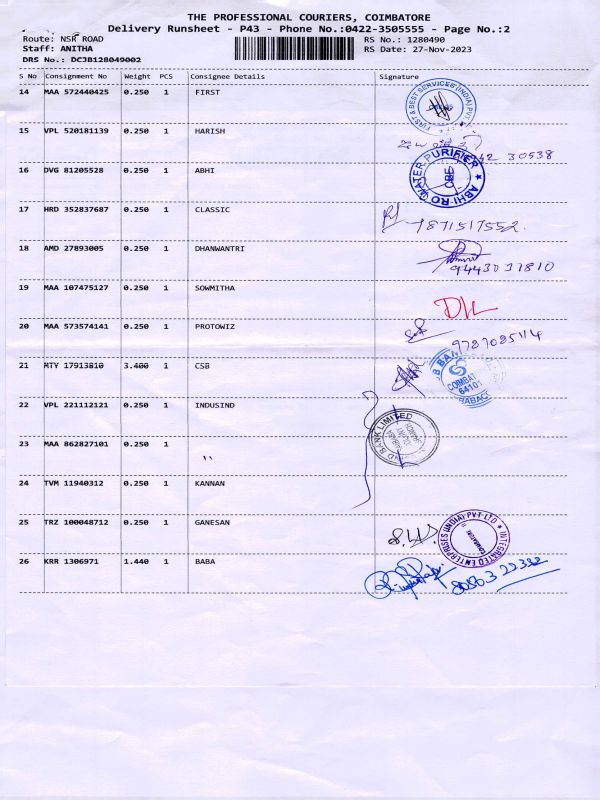 THE PROFESSIONAL COURIERS, COIMBATORE
Delivery Runsheet - P43 - Phone No.:0422-3505555 - Page No.:2
Route: NSR ROAD RS No.: 1280490
Staff: ANITHA RS Date: 27-Nov-2023
DRS No.: DCJB128049002
S No Consignment No Weight PCS Consignee Details Signature
14 MAA 572440425 0.250 1 FIRST
FIRST & BEST SERVICES (INDIA) PVT
15 VPL 520181139 0.250 1 HARISH
30538
16 DVG 81205528 0.250 1 ABHI
ABHI-RO WATER PURIFIER
CBE
17 HRD 352837687 0.250 1 CLASSIC
7871517552
18 AMD 27893005 0.250 1 DHANWANTRI
9443037810
19 MAA 107475127 0.250 1 SOWMITHA
20 MAA 573574141 0.250 1 PROTOWIZ
21 MTY 17913810 3.400 1 CSB
COIMBAT
64101
22 VPL 221112121 0.250 1 INDUSIND
BANK LIMITED
23 MAA 862827101 0.250 1 "
24 TVM 11940312 0.250 1 KANNAN
25 TRZ 100048712 0.250 1 GANESAN
INTEGRATED ENTERPRISES (INDIA) PVT LTD
26 KRR 1306971 1.440 1 BABA